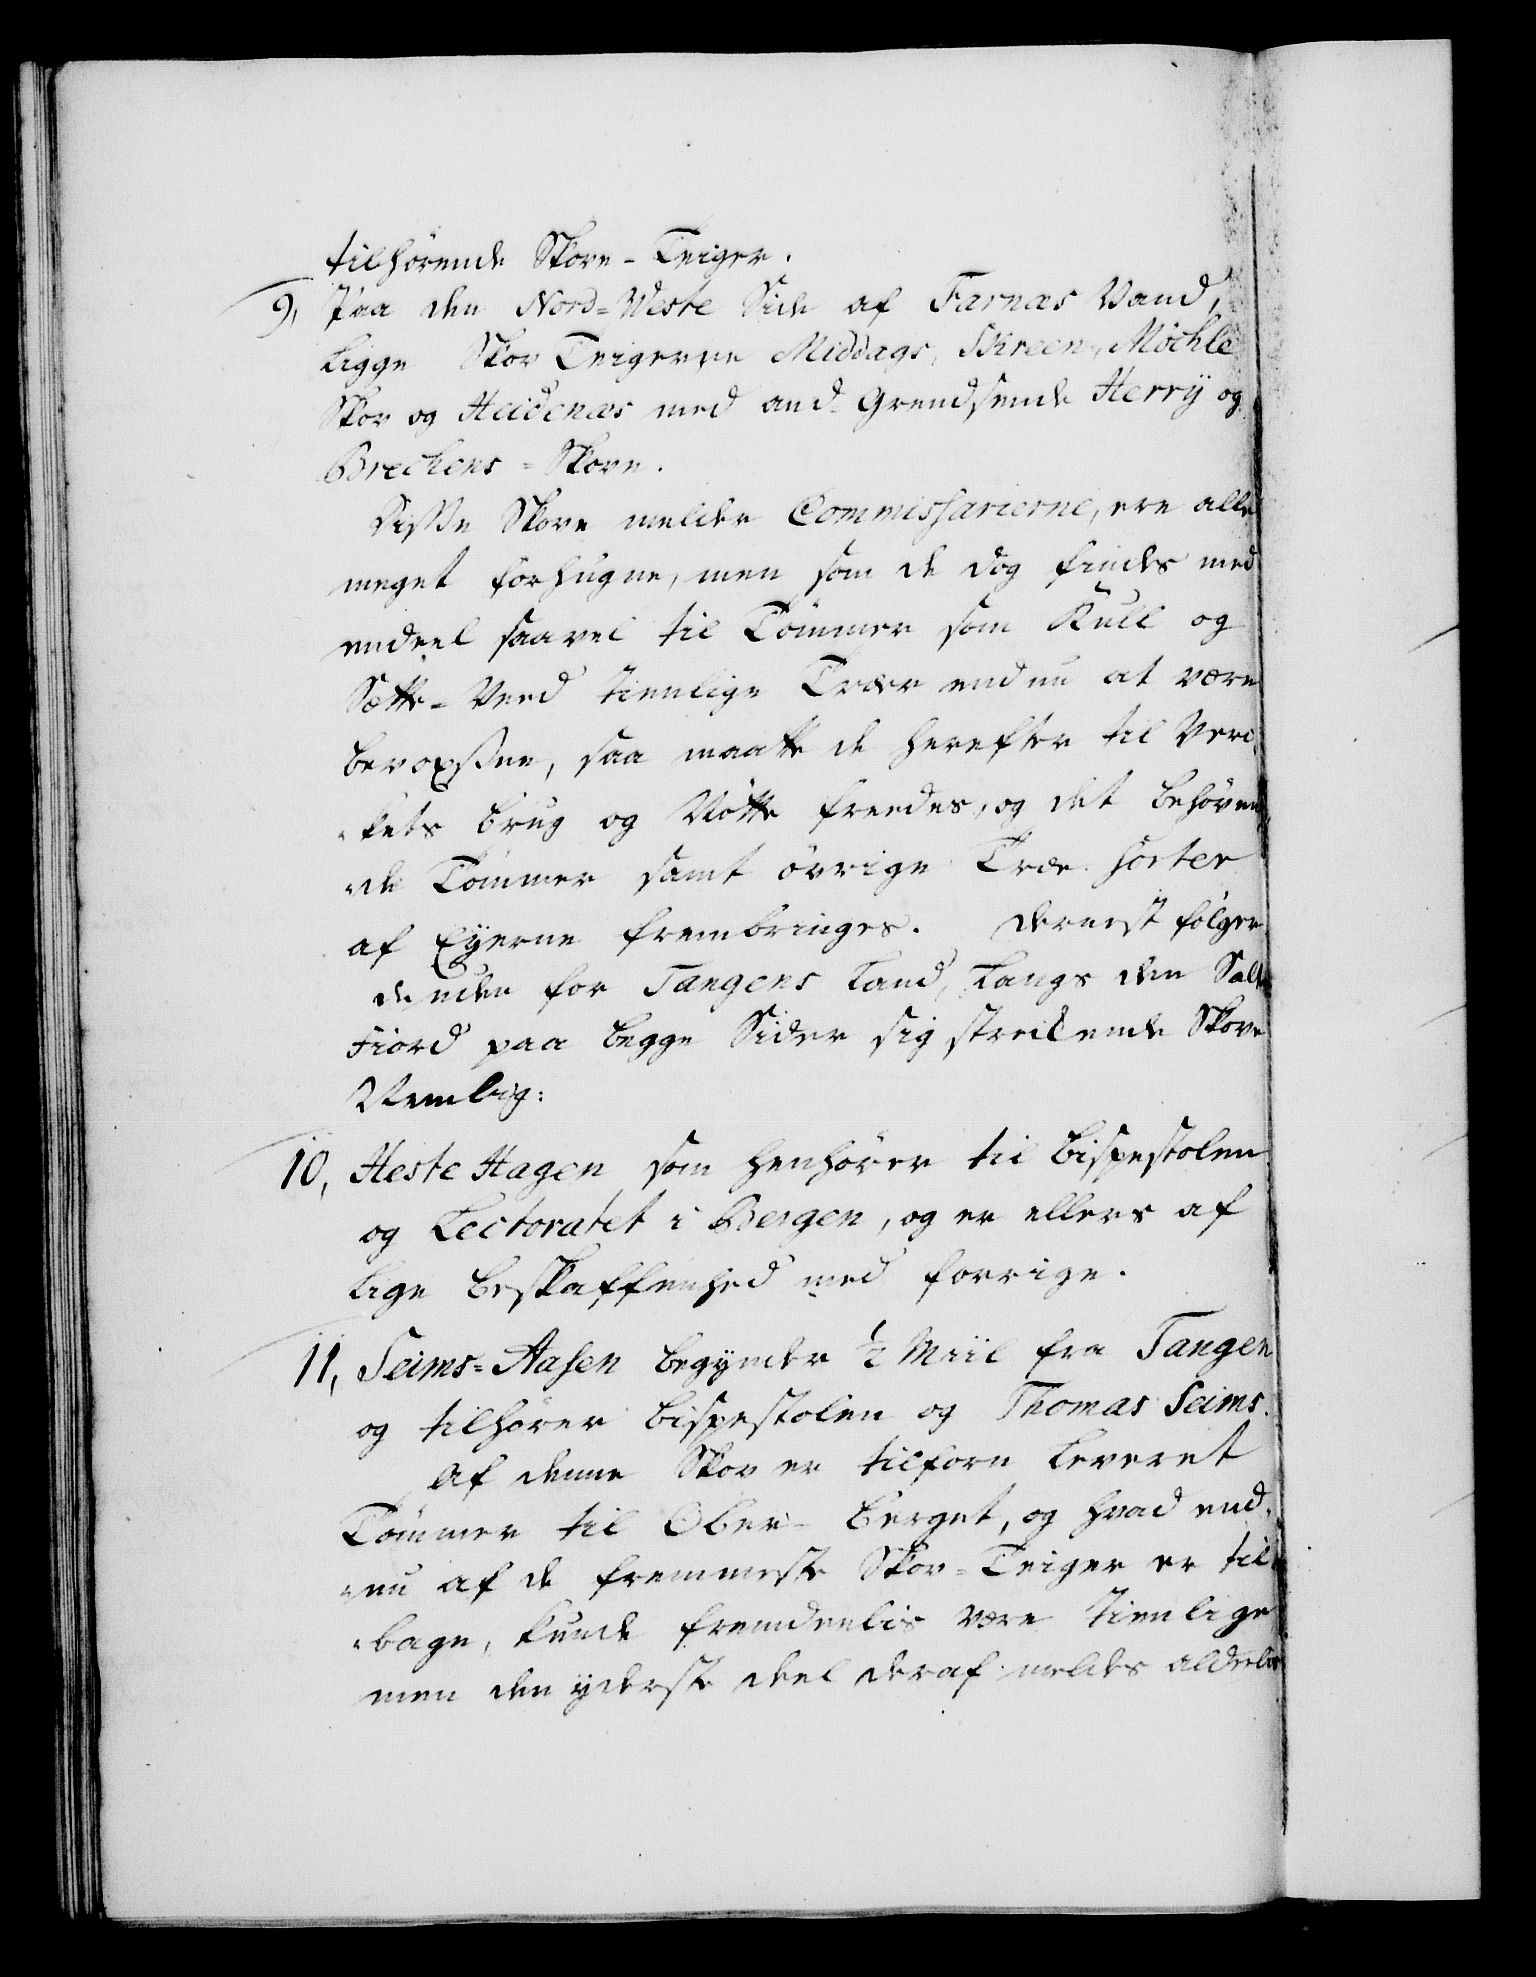 tilhørende Skove-Teiger.
9, Paa den Nord=Weste Side af Farnæs Vand,
ligge Skov Teigerne Middags, Skreen, Möchle
Skov og Heidenæs med and-Grendsende Herrÿ og
Brechens=Skove.
Disse Skove melder Commissarierne, ere alle
meget forhugne, men som de dog findes med
endeel saavel til Tömmer som Kull og
Sætte-Veed tienlige Træer endnu at være
bevoxsne, saa maatte de herefter til Ver¬
kets brug og Nötte freedes, og det behöven¬
de Tömmer samt övrige Træ sorter
af Eÿerne frembringes. Dernest fölger
de uden for Tangens Land, Langs den Salt
Fiord paa begge Sider sig streckende Skove
Nemlig:
10, Heste Hagen som henhörer til Bispestolen
og Lectoratet i Bergen, og er ellers af
lige beskaffenhed med forrige.
11, Seims=Aasen begynder ½ Miil fra Tangen
og tilhörer Bispestolen og Thomas Seims.
Af denne Skov er tilforn leveret
Tömmer til Ober-berget, og hvad end¬
nu af de fremmeste Skov=Teiger er til
bage, kunde fremdeelis være tienlige
men den yderste deel deraf meldes aldeeles